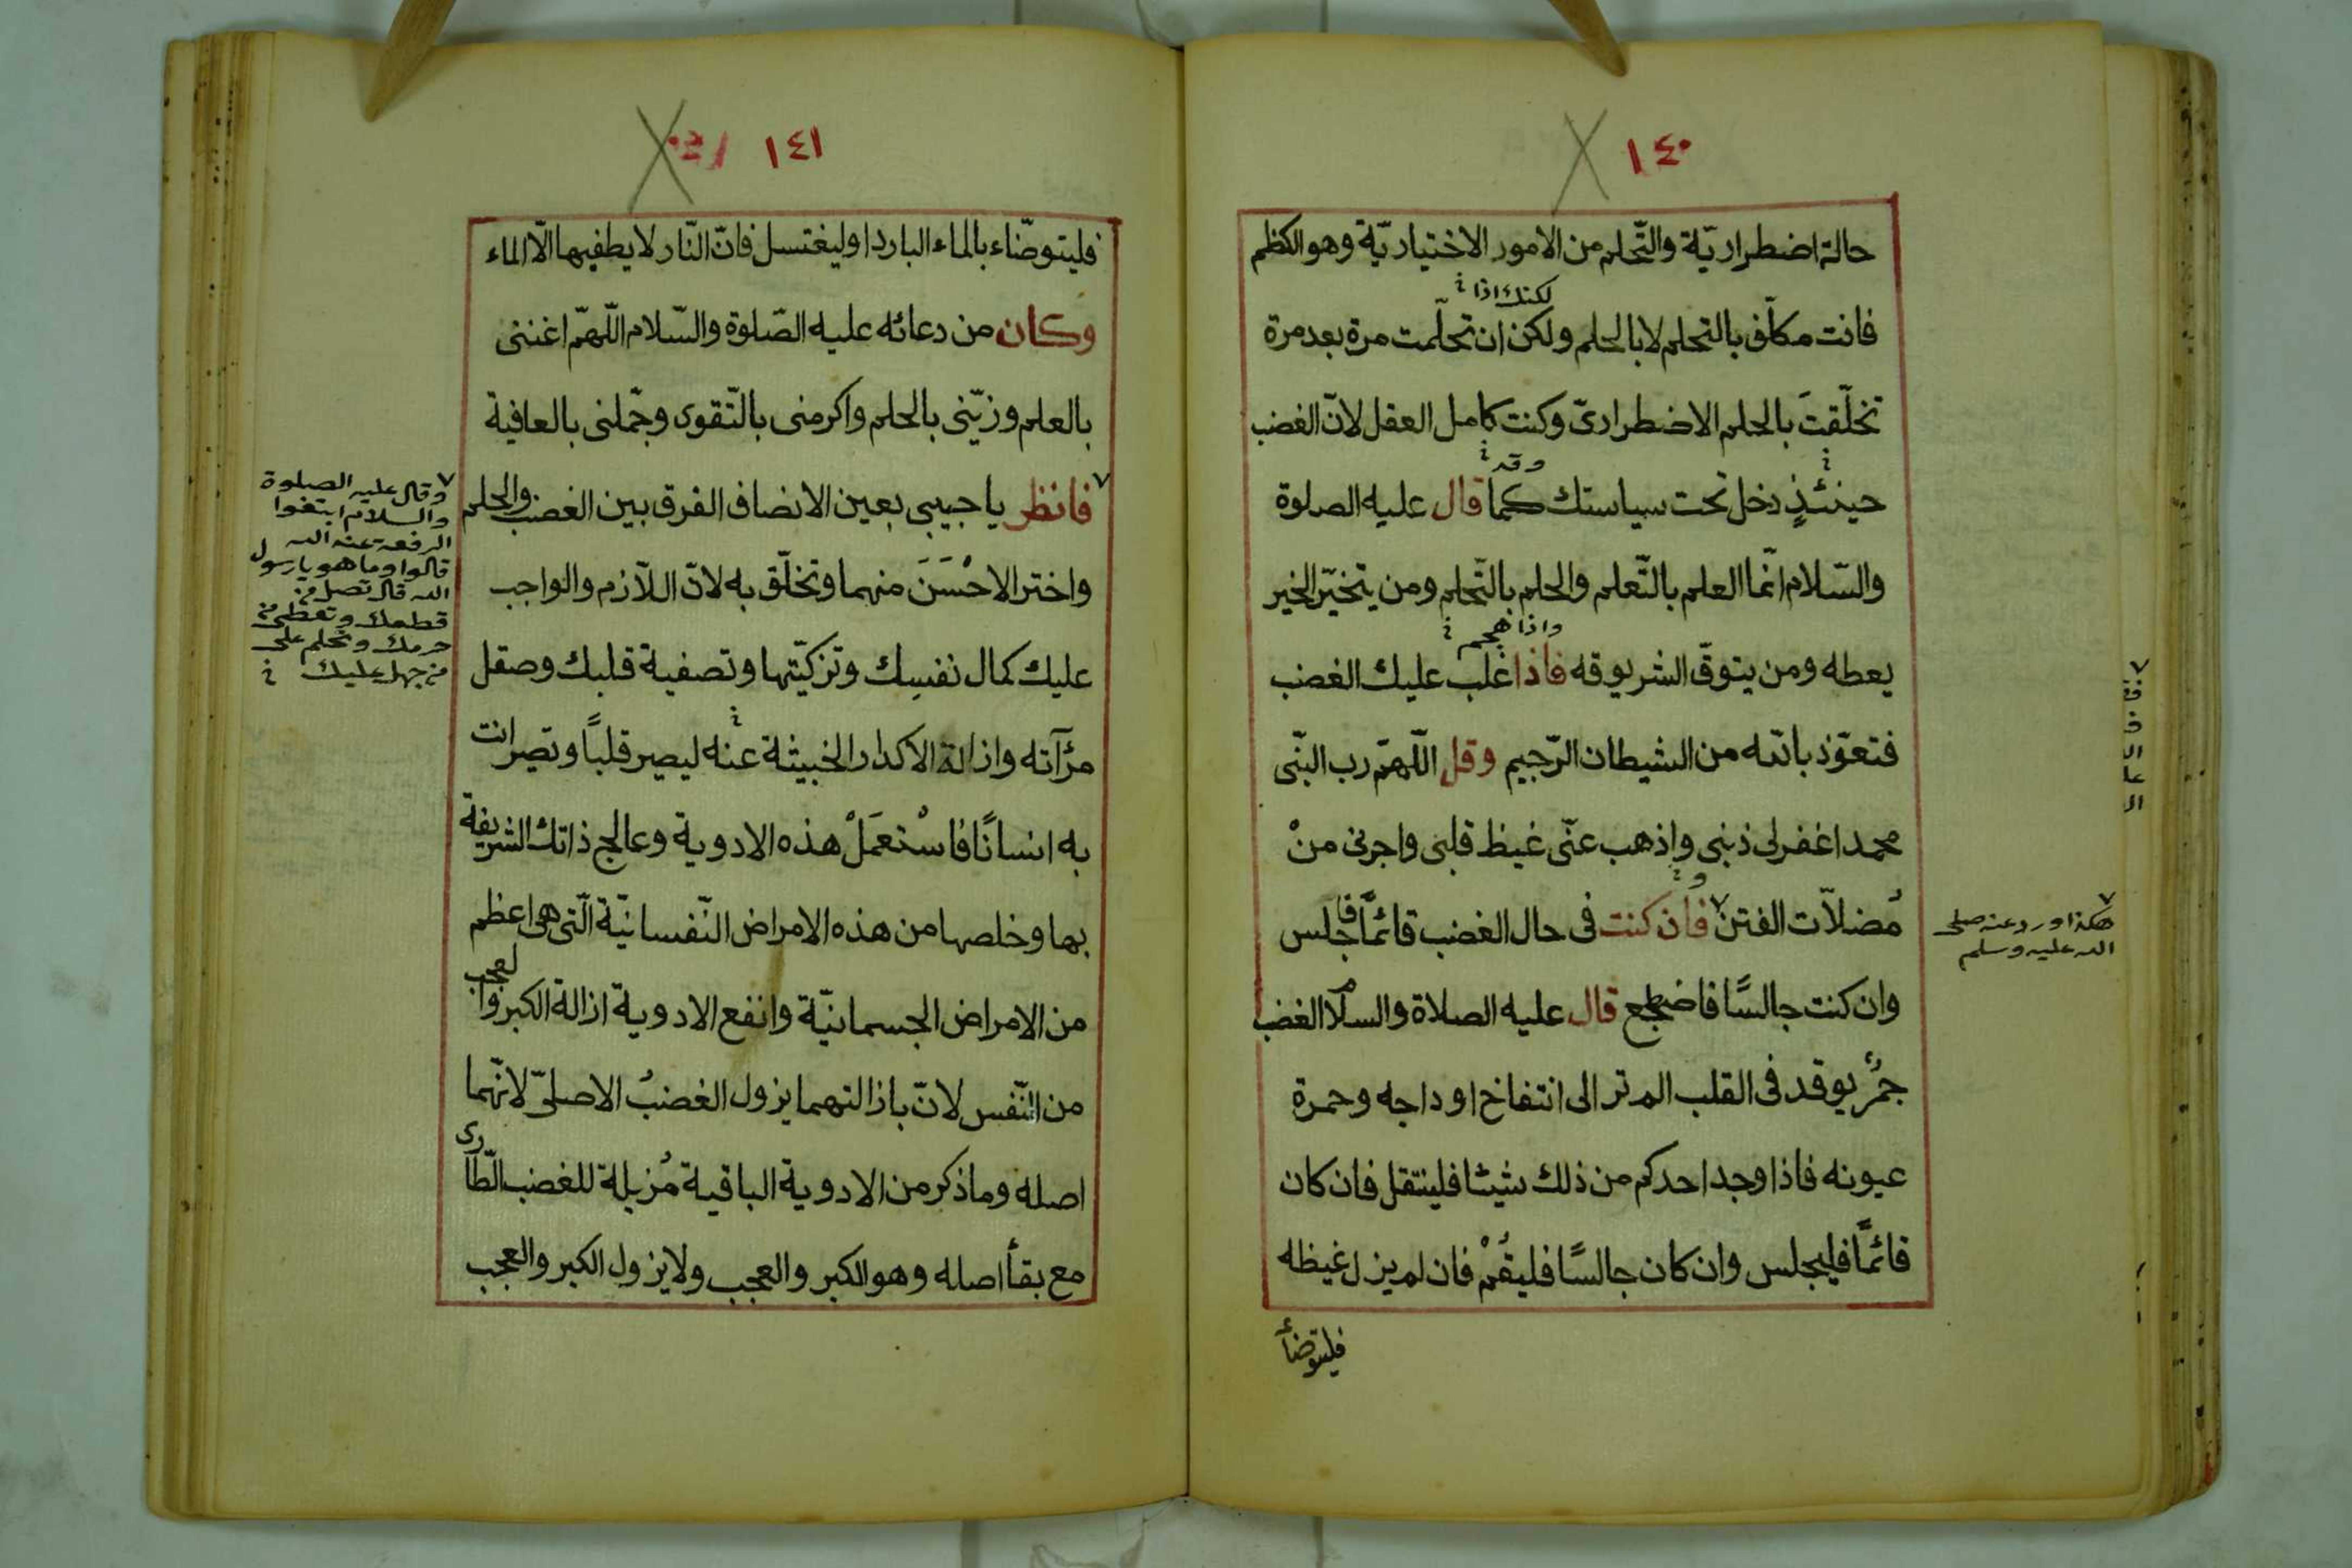 ١٤٠
حالة اضطراريّة والتّحلم من الامور الاختياريّة وهو الكظم
لكنك اذا
فانت مكلّف بالتحلم لا بالحلم ولكن ان تحلّمت مرة بعد مرة
تخلّقتَ بالحلم الاضطراریّ وكنت كامل العقل لانّ الغضب
وقد
حينئذٍ دخل تحت سياستك كما قال عليه الصلوة
والسّلام انّما العلم بالتّعلم والحلم بالتّحلم ومن يتخيّر الخير
واذا هجم
يعطه ومن يتوقّ الشر يوقه فاذا غلب عليك الغضب
فتعوّذ بالله من الشيطان الرّجيم وقل اللّهمّ رب النّبی
محمد اغفر لی ذنبی واذهب عنّی غيظ قلبی واجرنی منْ
مُضلاّت الفتن ٧ فان كنت فی حال الغضب قائمًا فاجلس
٧ هكذا ورد عنه صلی
الله عليه وسلم
وان كنت جالسًا فاضطجع قال عليه الصلاة والسلام الغضب
جمرٌ يوقد فی القلب الم تر الی انتفاخ اوداجه وحمرة
عيونه فاذا وجد احدكم من ذلك شيئا فلينتقل فان كان
قائمًا فليجلس وان كان جالسًا فليقُمْ فان لم يزل غيظه
فليتوضأ
١٤١
فليتوضّاء بالماء البارد او ليغتسل فانّ النّار لا يطفيها الّا الماء
وكان من دعائه عليه الصّلوة والسّلام اللّهمّ اغننی
بالعلم وزيّنی بالحلم واكرمنی بالتّقوی وجمّلنی بالعافية
٧ فانظر يا حبيبی بعين الانصاف الفرق بين الغضب والحلم
واختر الاحْسَنَ منهما وتخلّق به لانّ اللّازم والواجب
عليك كمال نفسك وتزكيّتها وتصفية قلبك وصقل
مرآته وازالة الاكدار الخبيثة عنه ليصير قلبًا وتصير انت
به انسانًا فاسْتعمَلْ هذه الادوية وعالج ذاتك الشريفة
بها وخلصها من هذه الامراض النّفسانيّة الّتی هی اعظم
من الامراض الجسمانيّة وانفع الادوية ازالة الكبر والعجب
من النّفس لانّ بازالتهما يزول الغضبُ الاصلیّ لانّهما
اصله وما ذكر من الادوية الباقية مُزيلة للغضب الطّاری
مع بقأ اصله وهو الكبر والعجب ولا يزول الكبر والعجب
٧ وقال عليه الصلوة
والسلام ابتغوا
الرفعة عند الله
قالوا وما هو يا رسول
الله قال تصل من
قطعك وتعطی من
حرمك وتحلم علی
من جهل عليك